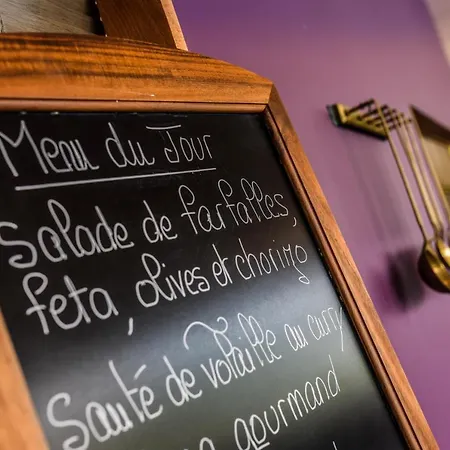 Menu du Jour
Salade de farfalles,
feta, olives et chorizo
Sauté de volaille au curry
gourmand